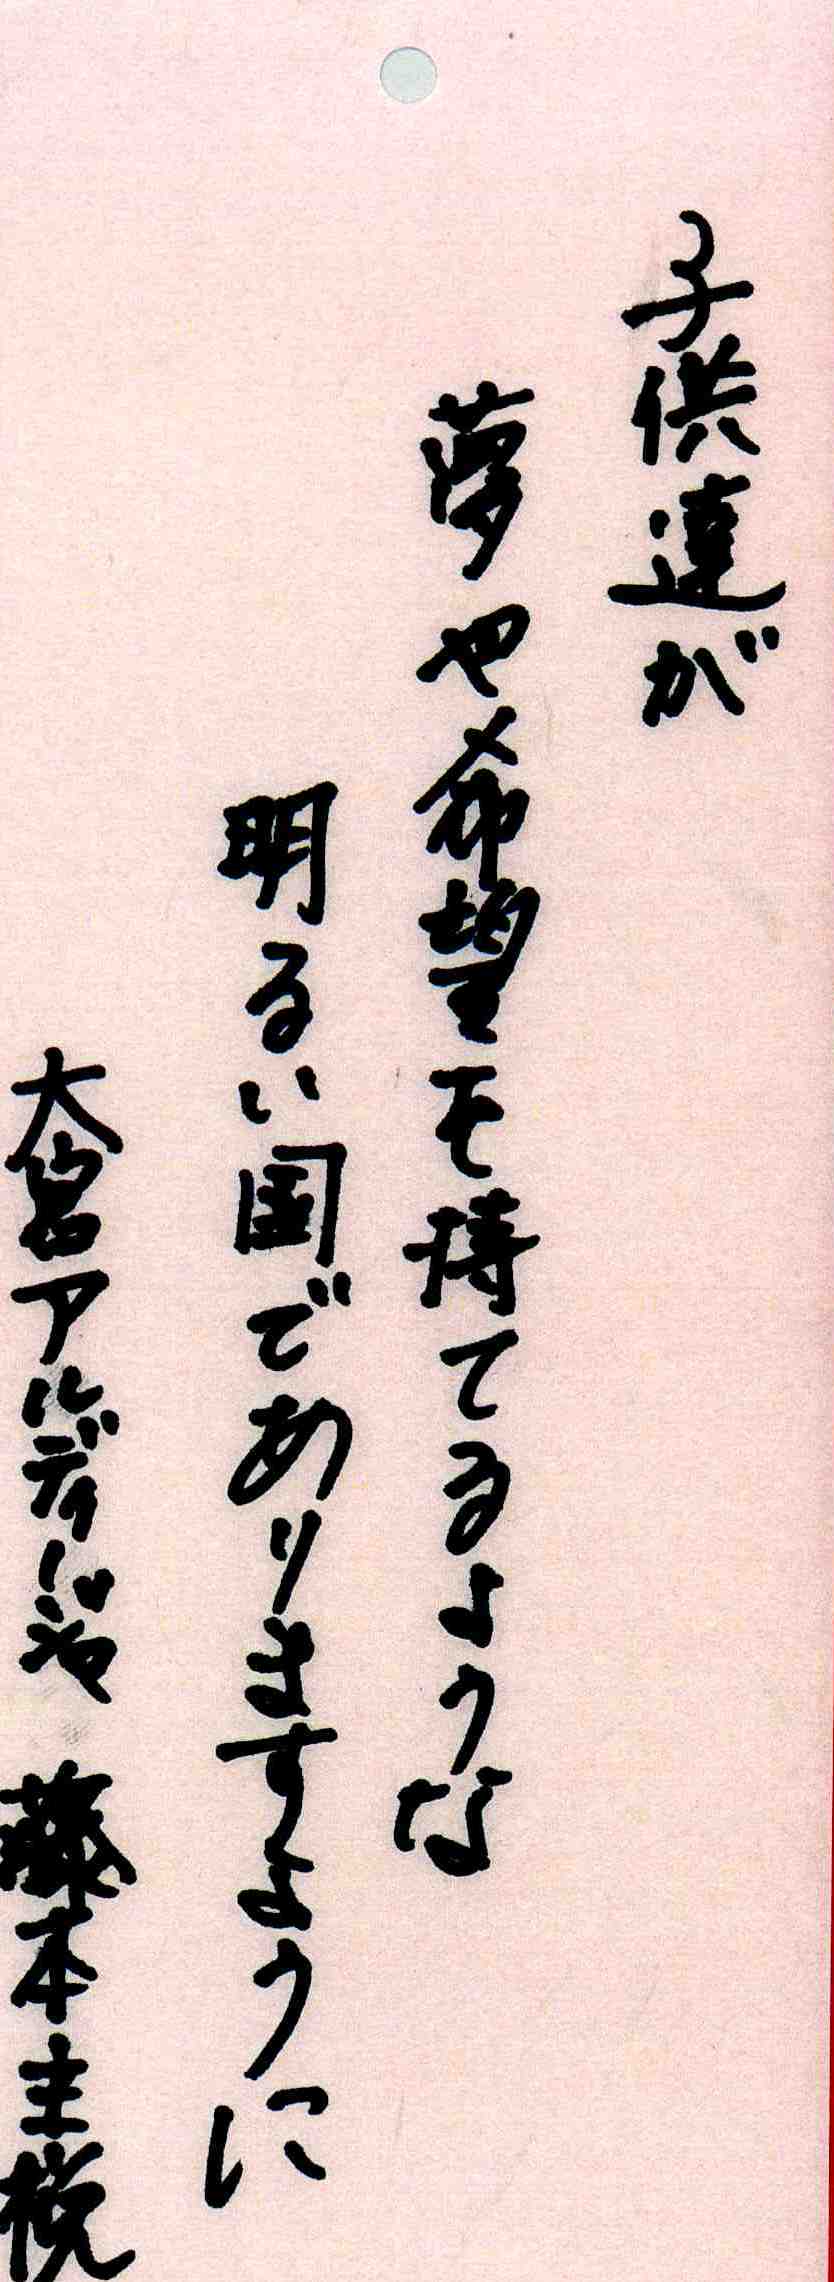 子供達が
夢や希望を持てるような
明るい国でありますように
大宮アルディージャ 藤本主税